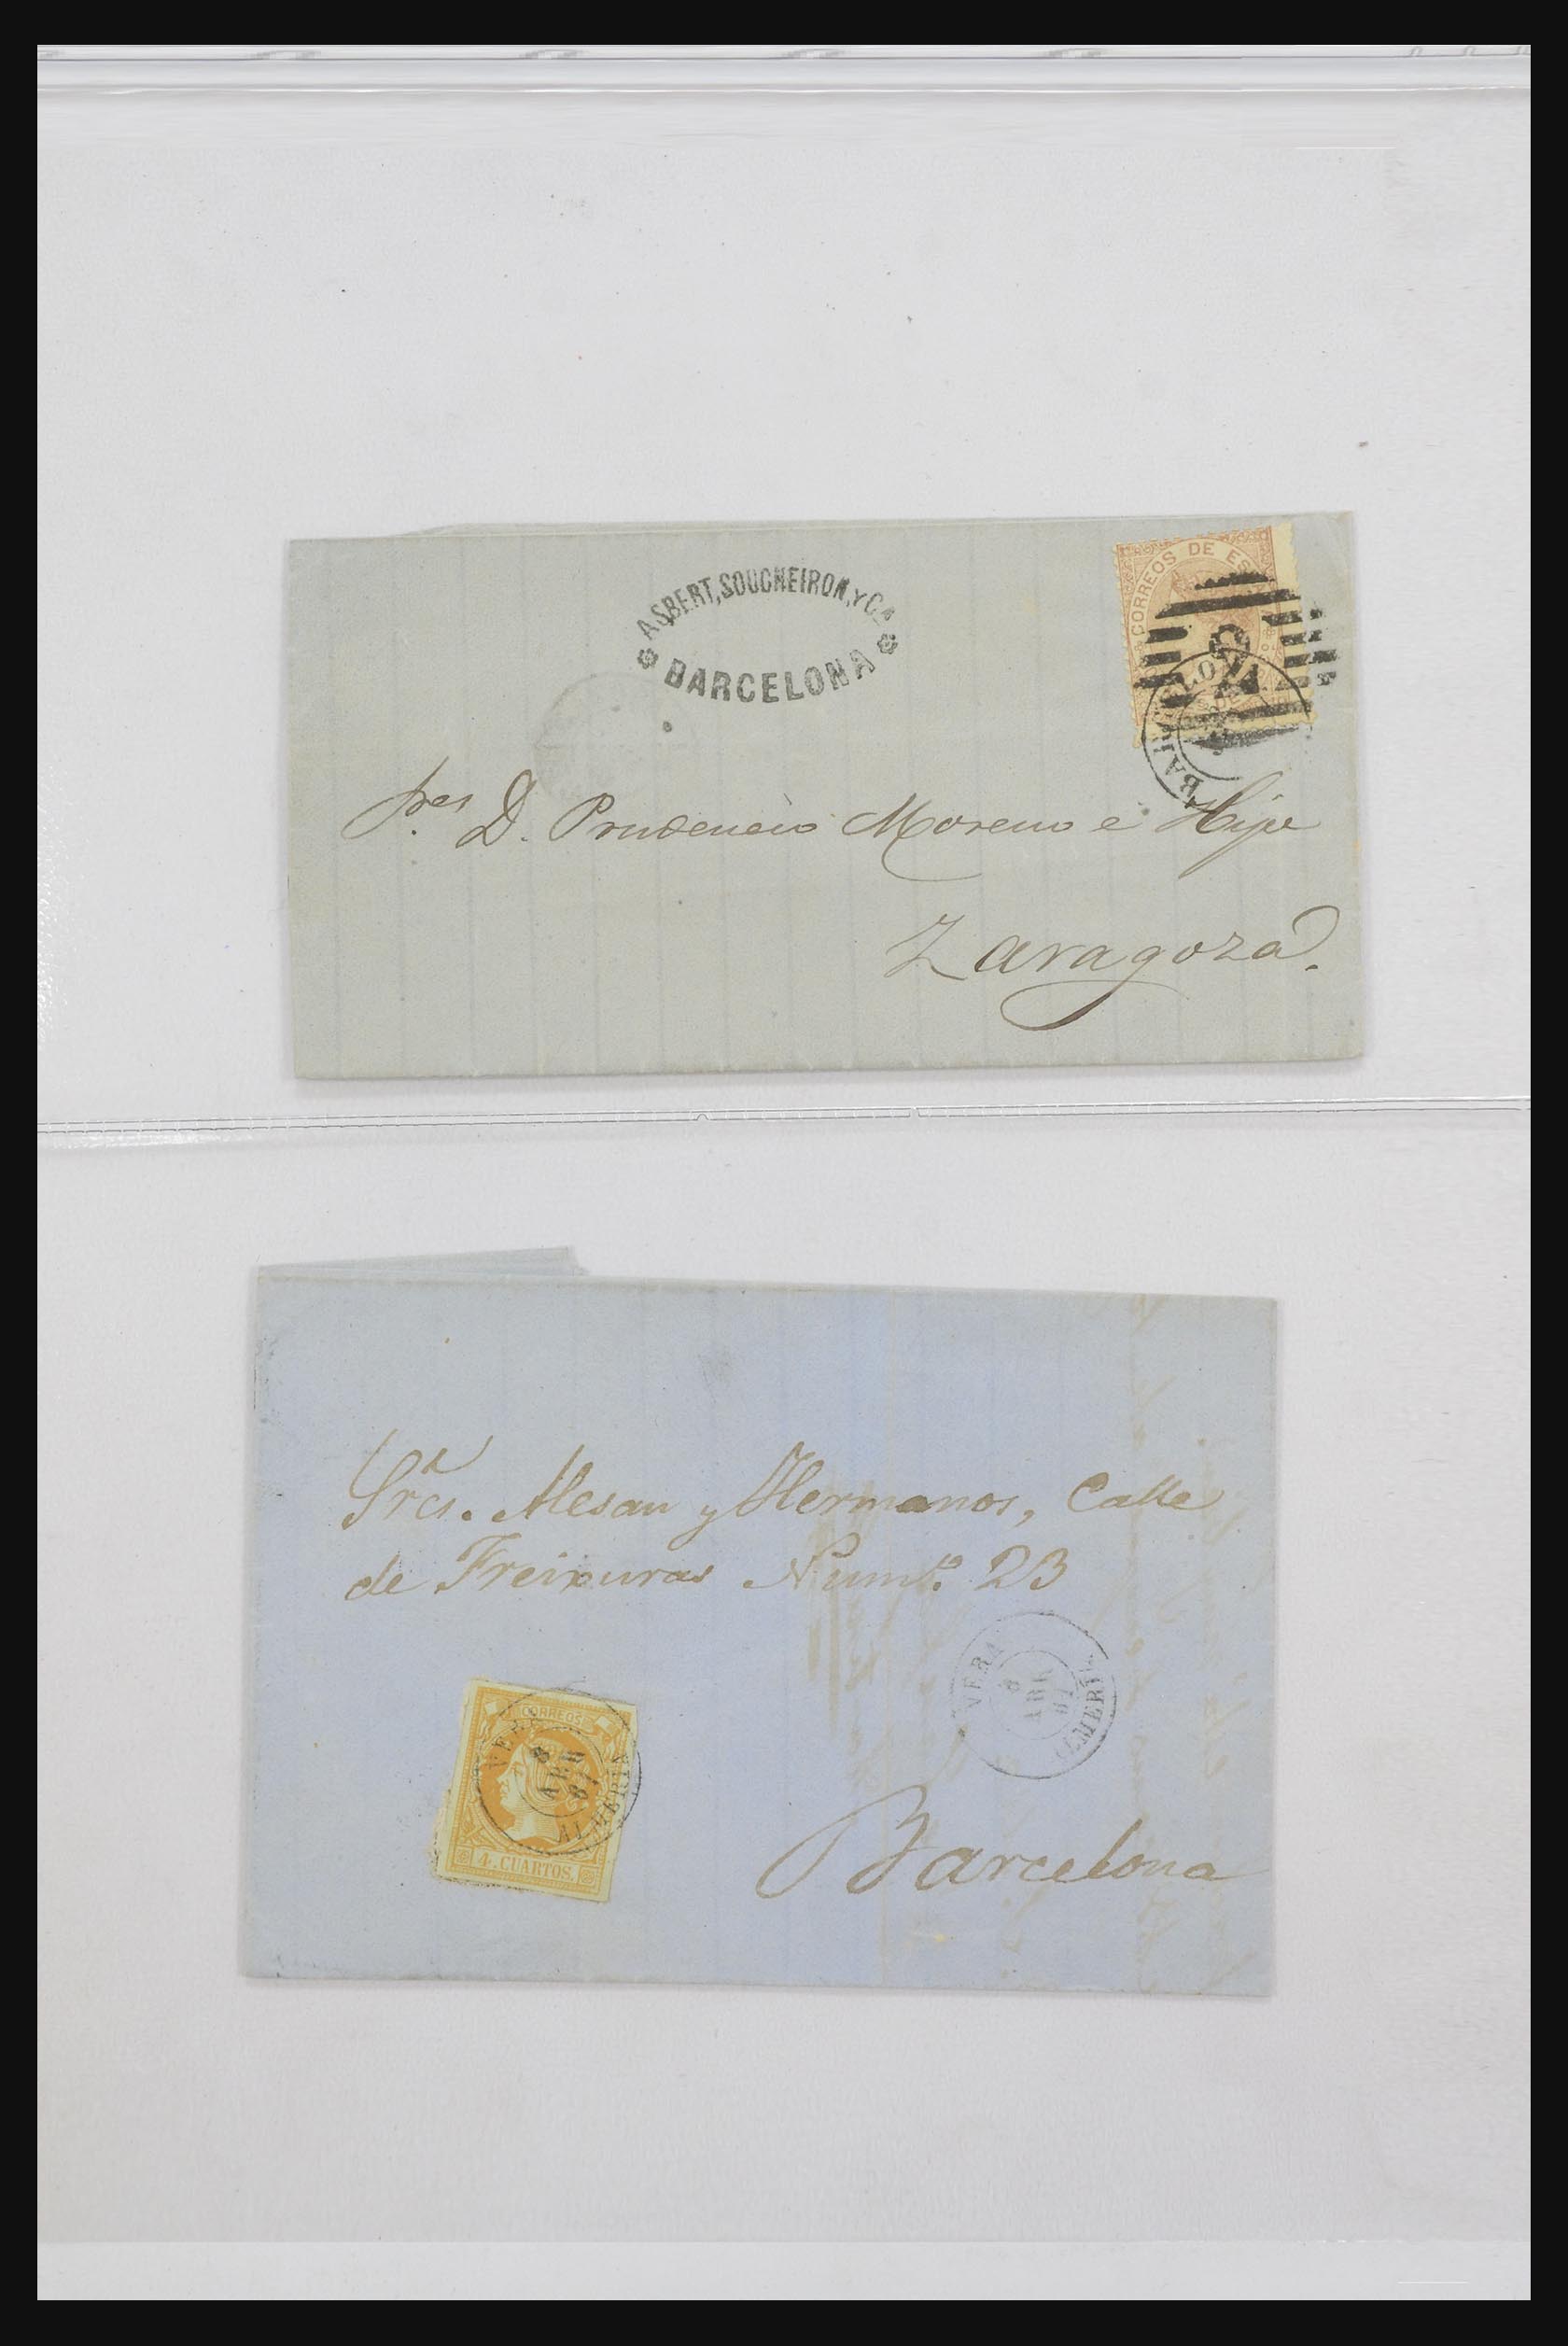 ASBERT, SOUCHEIRON, Y CA
BARCELONA
CORREOS DE ES
2
BARCELONA
Sres D. Prudencio Moreno e Hijo
Zaragoza.
Sres. Mesau y Hermanos, Calle
de Freixuras Numo. 23
VERA
8
ABR
61
ALMERIA
CORREOS
VERA
8
ABR
61
ALMERIA
4 CUARTOS.
Barcelona